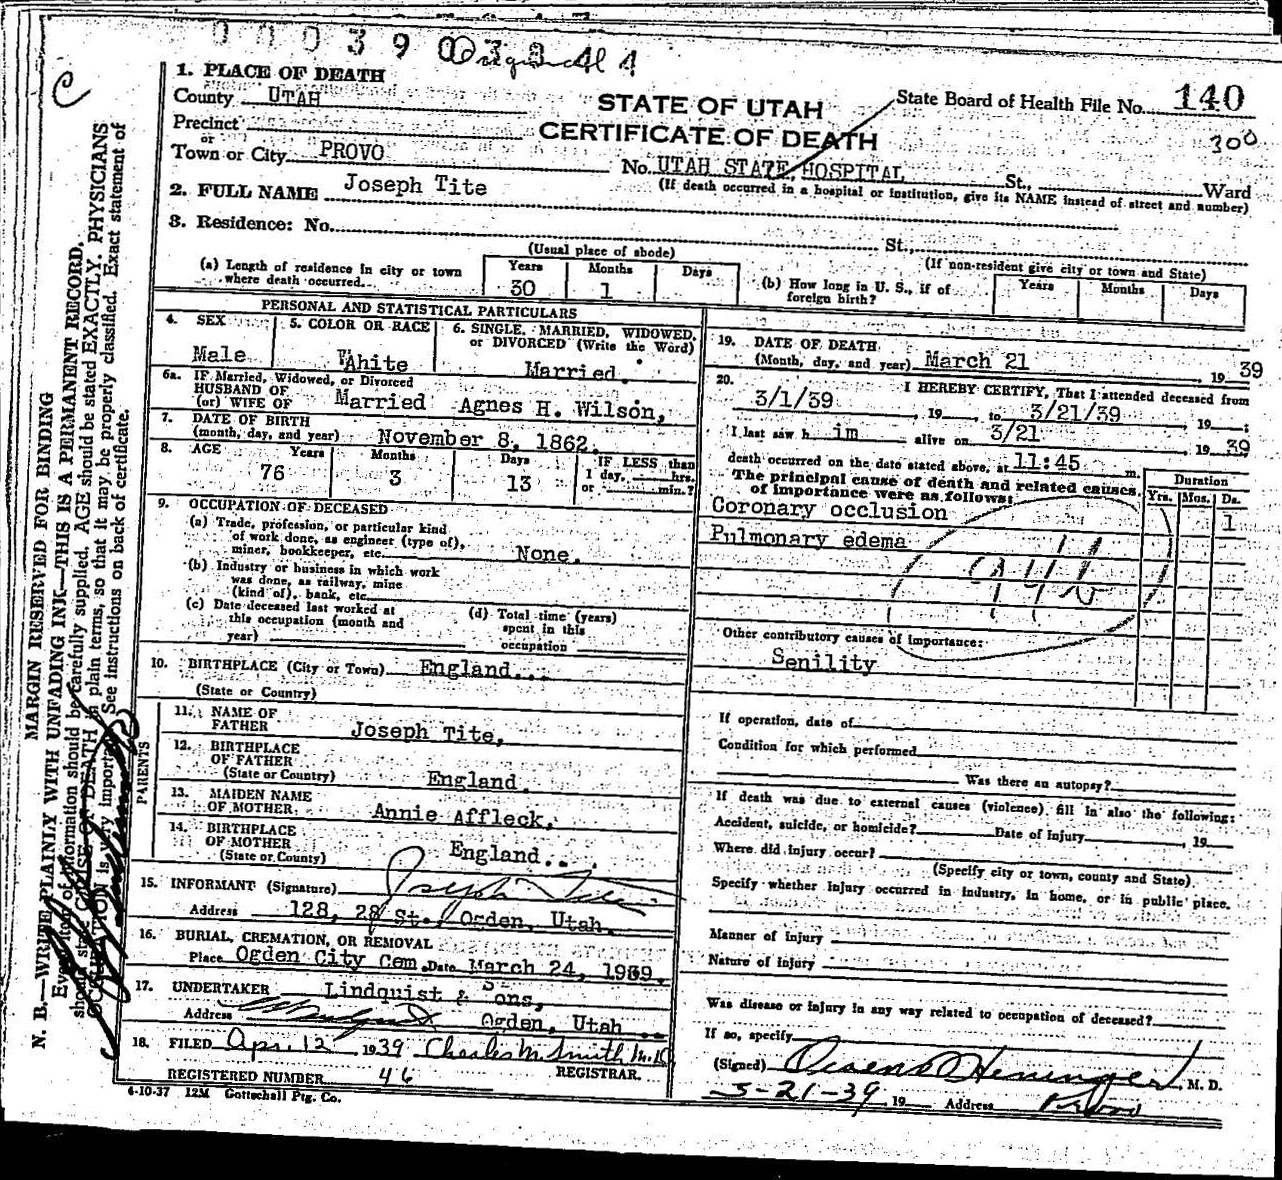 0 0 0 3 9 0 0 3 8 4 4
1. PLACE OF DEATH
County UTAH
Precinct
or
Town or City PROVO
STATE OF UTAH
CERTIFICATE OF DEATH
State Board of Health File No. 140
300
No. UTAH STATE HOSPITAL St., Ward
(If death occurred in a hospital or institution, give its NAME instead of street and number)
2. FULL NAME Joseph Tite
3. Residence: No. St.,
(Usual place of abode)
(If non-resident give city or town and State)
(a) Length of residence in city or town where death occurred
Years Months Days
30 1
(b) How long in U. S., if of foreign birth?
Years Months Days
PERSONAL AND STATISTICAL PARTICULARS
4. SEX
Male
5. COLOR OR RACE
White
6. SINGLE, MARRIED, WIDOWED, or DIVORCED (Write the Word)
Married.
6a. IF Married, Widowed, or Divorced
HUSBAND OF
(or) WIFE OF Married Agnes H. Wilson,
7. DATE OF BIRTH
(month, day, and year) November 8, 1862.
8. AGE Years Months Days
76 3 13
IF LESS than
1 day, hrs.
or min.?
9. OCCUPATION OF DECEASED
(a) Trade, profession, or particular kind
of work done, as engineer (type of),
miner, bookkeeper, etc. None.
(b) Industry or business in which work
was done, as railway, mine
(kind of), bank, etc.
(c) Date deceased last worked at
this occupation (month and
year)
(d) Total time (years)
spent in this
occupation
10. BIRTHPLACE (City or Town) England...
(State or Country)
PARENTS
11. NAME OF
FATHER Joseph Tite,
12. BIRTHPLACE
OF FATHER
(State or Country) England.
13. MAIDEN NAME
OF MOTHER Annie Affleck,
14. BIRTHPLACE
OF MOTHER
(State or County) England...
15. INFORMANT (Signature) Joseph Tite
Address 128, 28 St., Ogden, Utah.
16. BURIAL, CREMATION, OR REMOVAL
Place Ogden City Cem. Date March 24, 1939.
17. UNDERTAKER Lindquist & Sons,
Address Ogden, Utah
18. FILED Apr. 12 1939 Charles M. Smith M.D.
REGISTRAR.
REGISTERED NUMBER 46
4-10-37 12M Gottschall Ptg. Co.
19. DATE OF DEATH
(Month, day, and year) March 21, 1939
20. I HEREBY CERTIFY, That I attended deceased from
3/1/39, 19 to 3/21/39, 19 ;
I last saw h im alive on 3/21 19 39
death occurred on the date stated above, at 11:45 m.
The principal cause of death and related causes
of importance were as follows:
Duration
Yrs. Mos. Ds.
Coronary occlusion 1
Pulmonary edema
94b
Other contributory causes of importance:
Senility
If operation, date of
Condition for which performed
Was there an autopsy?
If death was due to external causes (violence) fill in also the following:
Accident, suicide, or homicide? Date of injury , 19
Where did injury occur?
(Specify city or town, county and State)
Specify whether injury occurred in industry, in home, or in public place.
Manner of injury
Nature of injury
Was disease or injury in any way related to occupation of deceased?
If so, specify
(Signed) Owens Heninger, M. D.
3-21-39, 19 Address Provo
MARGIN RESERVED FOR BINDING
N. B.—WRITE PLAINLY WITH UNFADING INK—THIS IS A PERMANENT RECORD.
Every item of information should be carefully supplied. AGE should be stated EXACTLY. PHYSICIANS
should state CAUSE OF DEATH in plain terms, so that it may be properly classified. Exact statement of
OCCUPATION is very important. See instructions on back of certificate.